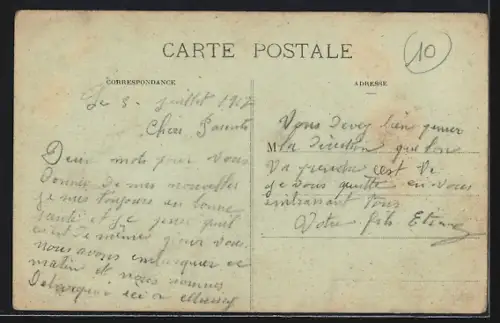 CARTE POSTALE
10
CORRESPONDANCE
ADRESSE
Le 8 juillet 1917
Cher Parents
Deux mots pour vous
Donnez De mes nouvelles
je mes toujours en bonne
santé et je pense quil
est De même pour vous
nous avons embarquer ce
matin et nous sommes
Debarquer ici a
Vous Devez bien penser
M la Direction que l'on
Va prendre c'est
je vous quitte en vous
embrassant tous
Votre fils Etienne